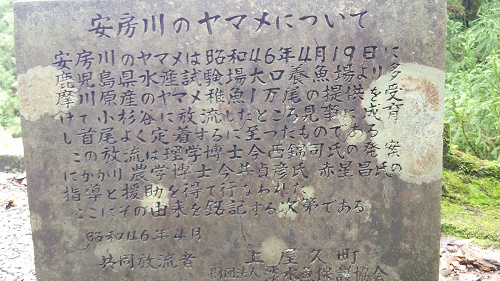 安房川のヤマメについて
安房川のヤマメは昭和46年4月19日に
鹿児島県水産試験場大口養魚場より多
摩川原産のヤマメ稚魚1万尾の提供を受
けて小杉谷に放流したところ見事に成育
し首尾よく定着するに至つたものである
この放流は理学博士今西錦司氏の発案
にかかり農学博士今井貞彦氏 赤星昌氏の
指導と援助を得て行なわれた
ここにその由来を銘記する次第である
昭和46年4月
共同放流者 上屋久町
財団法人淡水魚保護協会